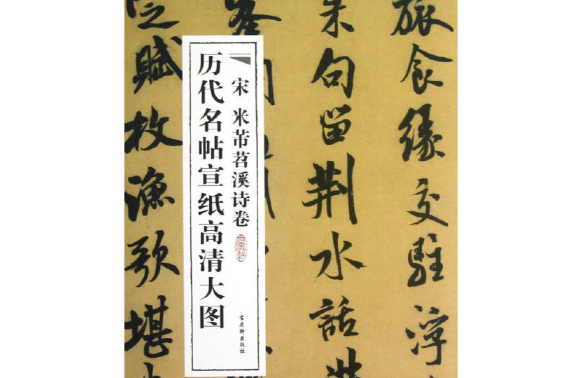 旅食緣交駐浮
来句留荆水話
宋 米芾苕溪诗卷
历代名帖宣纸高清大图
古吴轩出版社
定賦枚漁歌堪